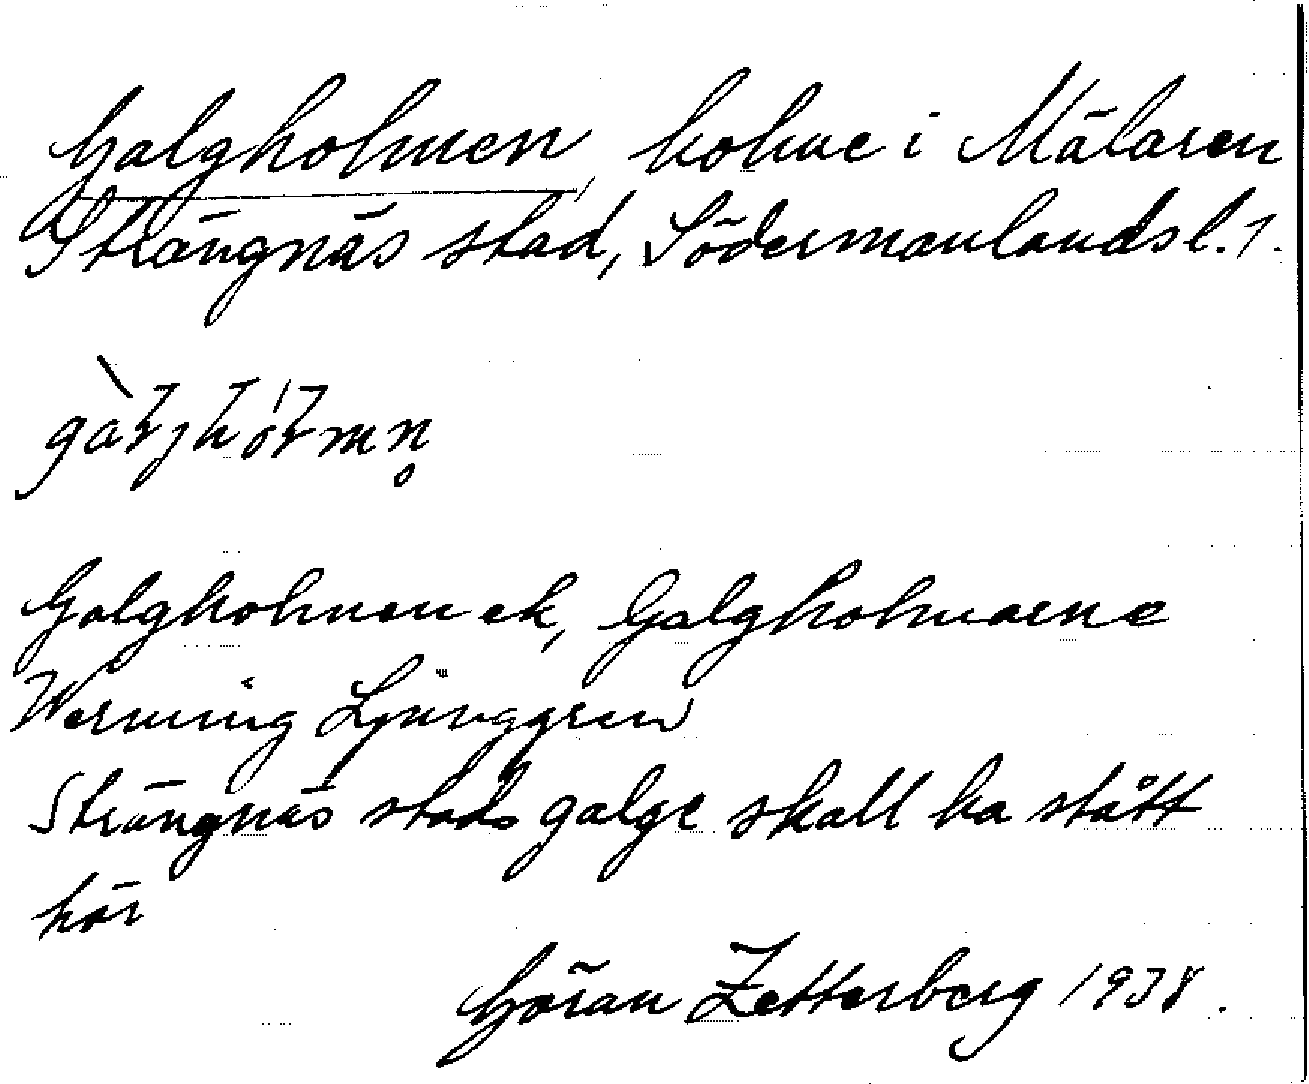 Galgholmen, holme i Mälaren
Strängnäs stad, Södermanlands l. 1.
Galgholmen ek, Galgholmarne
Werming Ljunggren
Strängnäs stads galge skall ha stått
här
Göran Zetterberg 1938.